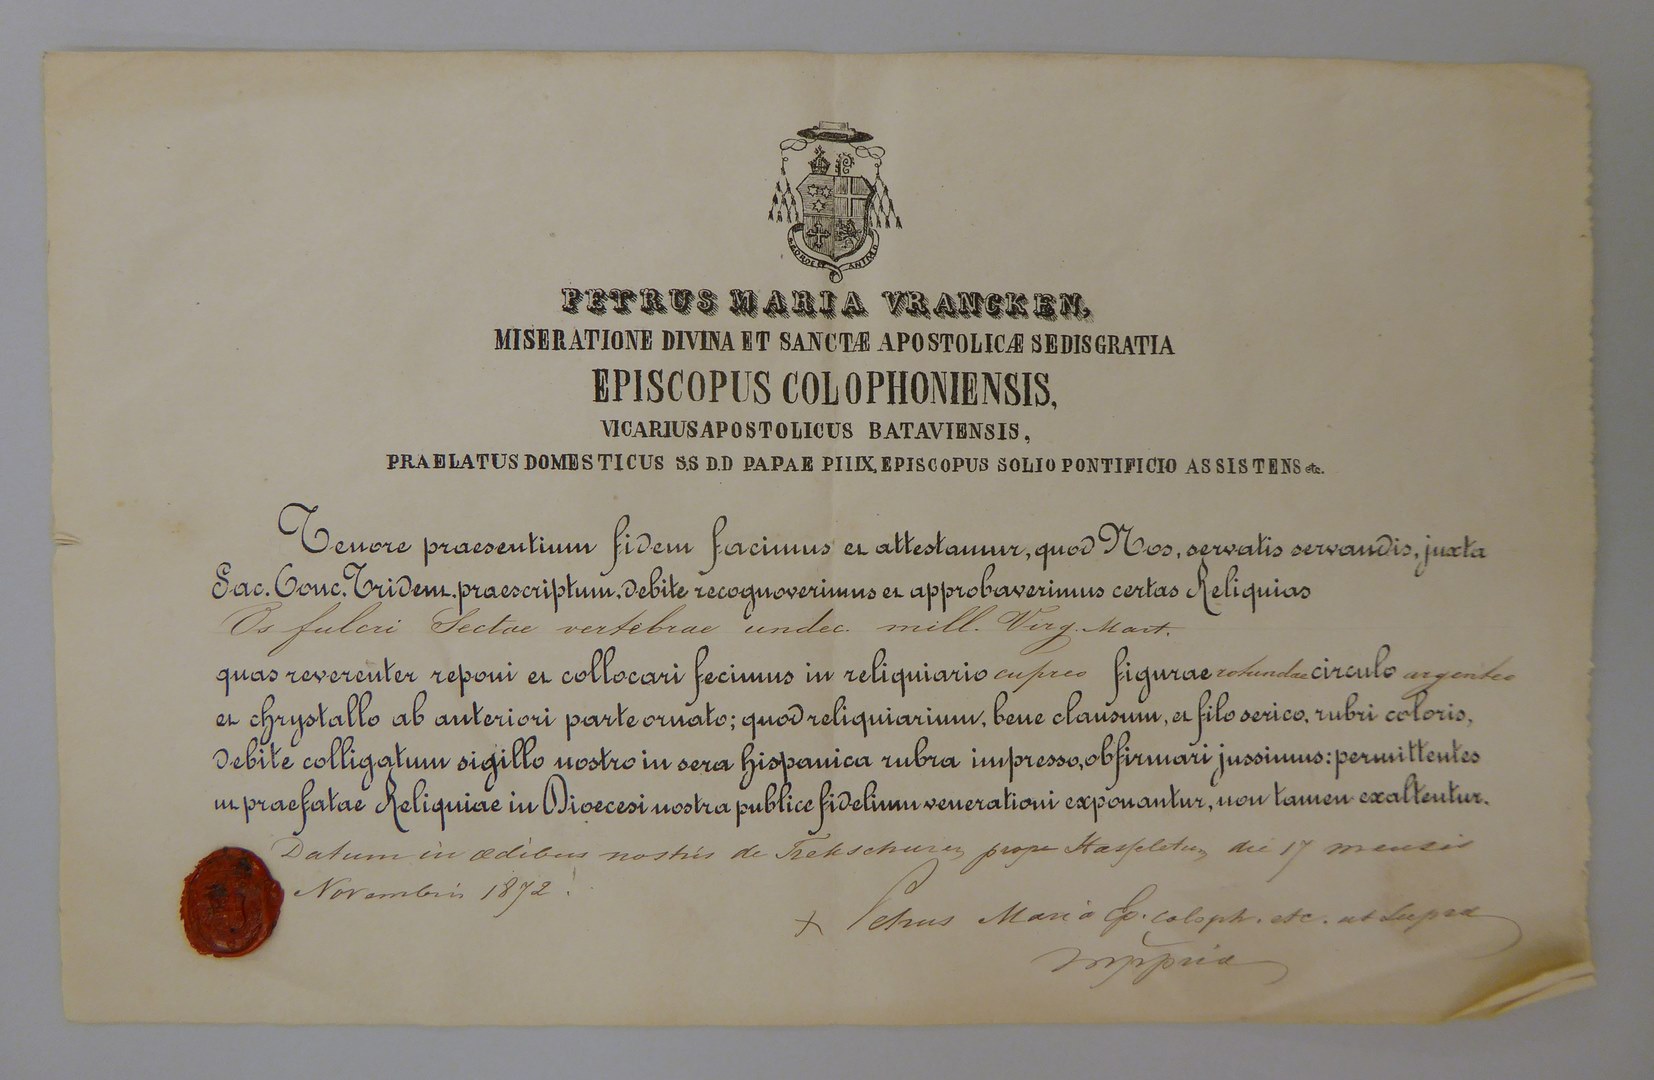 PETRUS MARIA VRANCKEN,
MISERATIONE DIVINA ET SANCTÆ APOSTOLICÆ SEDIS GRATIA
EPISCOPUS COLOPHONIENSIS,
VICARIUS APOSTOLICUS BATAVIENSIS,
PRAELATUS DOMESTICUS S.S D.D PAPAE PII IX, EPISCOPUS SOLIO PONTIFICIO ASSISTENS etc.
Tenore praesentium fidem facimus et attestamur, quod Nos, servatis servandis, juxta
Sac. Conc. Trident. praescriptum, debite recognoverimus et approbaverimus certas Reliquias
Os fulcri Sectae vertebrae undec. mill. Virg. Mart.
quas reverenter reponi et collocari fecimus in reliquiario cupreo figurae rotundae circulo argenteo
et chrystallo ab anteriori parte ornato; quod reliquiarium, bene clausum, et filo serico, rubri coloris,
debite colligatum sigillo nostro in sera hispanica rubra impresso, obfirmari jussimus: permittentes
ut praefatae Reliquiae in Dioecesi nostra publice fidelium venerationi exponantur, non tamen exaltentur.
Datum in ædibus nostris de Trekschuren prope Hasseletum die 17 mensis
Novembris 1872.
+ Petrus Maria Ep. Coloph. etc. ut supra
mppria